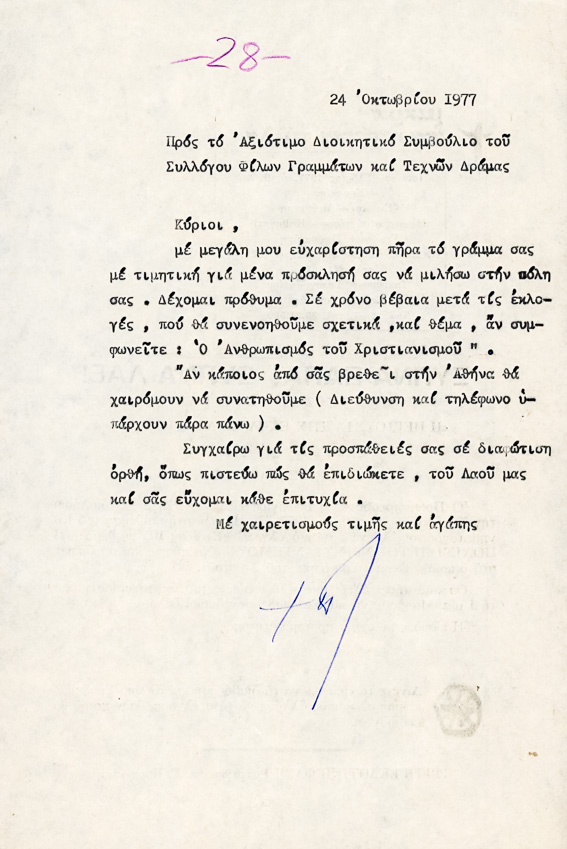 -28-
24 Ὀκτωβρίου 1977
Πρός τό Ἀξιότιμο Διοικητικό Συμβούλιο τοῦ
Συλλόγου Φίλων Γραμμάτων καί Τεχνῶν Δράμας
Κύριοι ,
μέ μεγάλη μου εὐχαρίστηση πῆρα τό γράμμα σας
μέ τιμητική γιά μένα πρόσκλησή σας νά μιλήσω στήν πόλη
σας . Δέχομαι πρόθυμα . Σέ χρόνο βέβαια μετά τίς ἐκλο-
γές , πού θά συνενοηθοῦμε σχετικά ,καί θέμα , ἄν συμ-
φωνεῖτε : Ὁ Ἀνθρωπισμός τοῦ Χριστιανισμοῦ " .
Ἄν κάποιος ἀπό σᾶς βρεθεῖ στήν Ἀθήνα θά
χαιρόμουν νά συνατηθοῦμε ( Διεύθυνση καί τηλέφωνο ὑ-
πάρχουν πάρα πάνω ) .
Συγχαίρω γιά τίς προσπάθειές σας σέ διαφώτιση
ὀρθή, ὅπως πιστεύω πώς θά ἐπιδιώκετε , τοῦ Λαοῦ μας
καί σᾶς εὔχομαι κάθε ἐπιτυχία .
Μέ χαιρετισμούς τιμῆς καί ἀγάπης